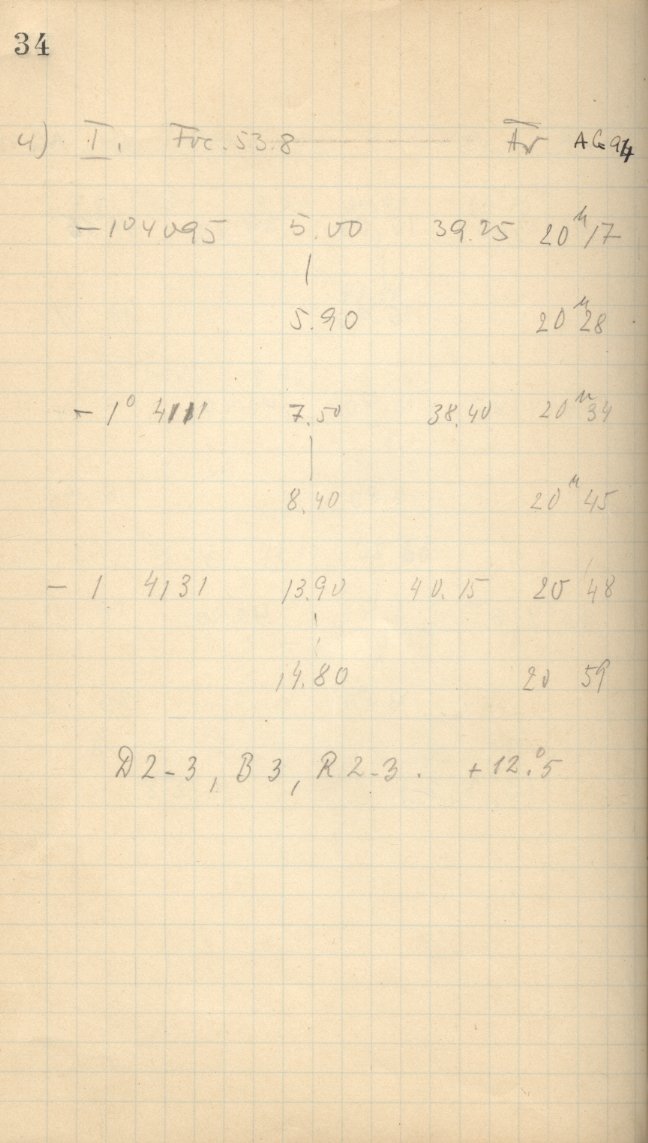 34
4) I. Foc. 53.8 Av AG94
-1° 4095 5.00 39.25 20h 17
5.90 20h 28
-1° 4111 7.50 38.40 20h 34
8.40 20h 45
- 1 4131 13.90 40.15 20 48
14.80 20 59
D2-3, B3, R2-3. +12.°5